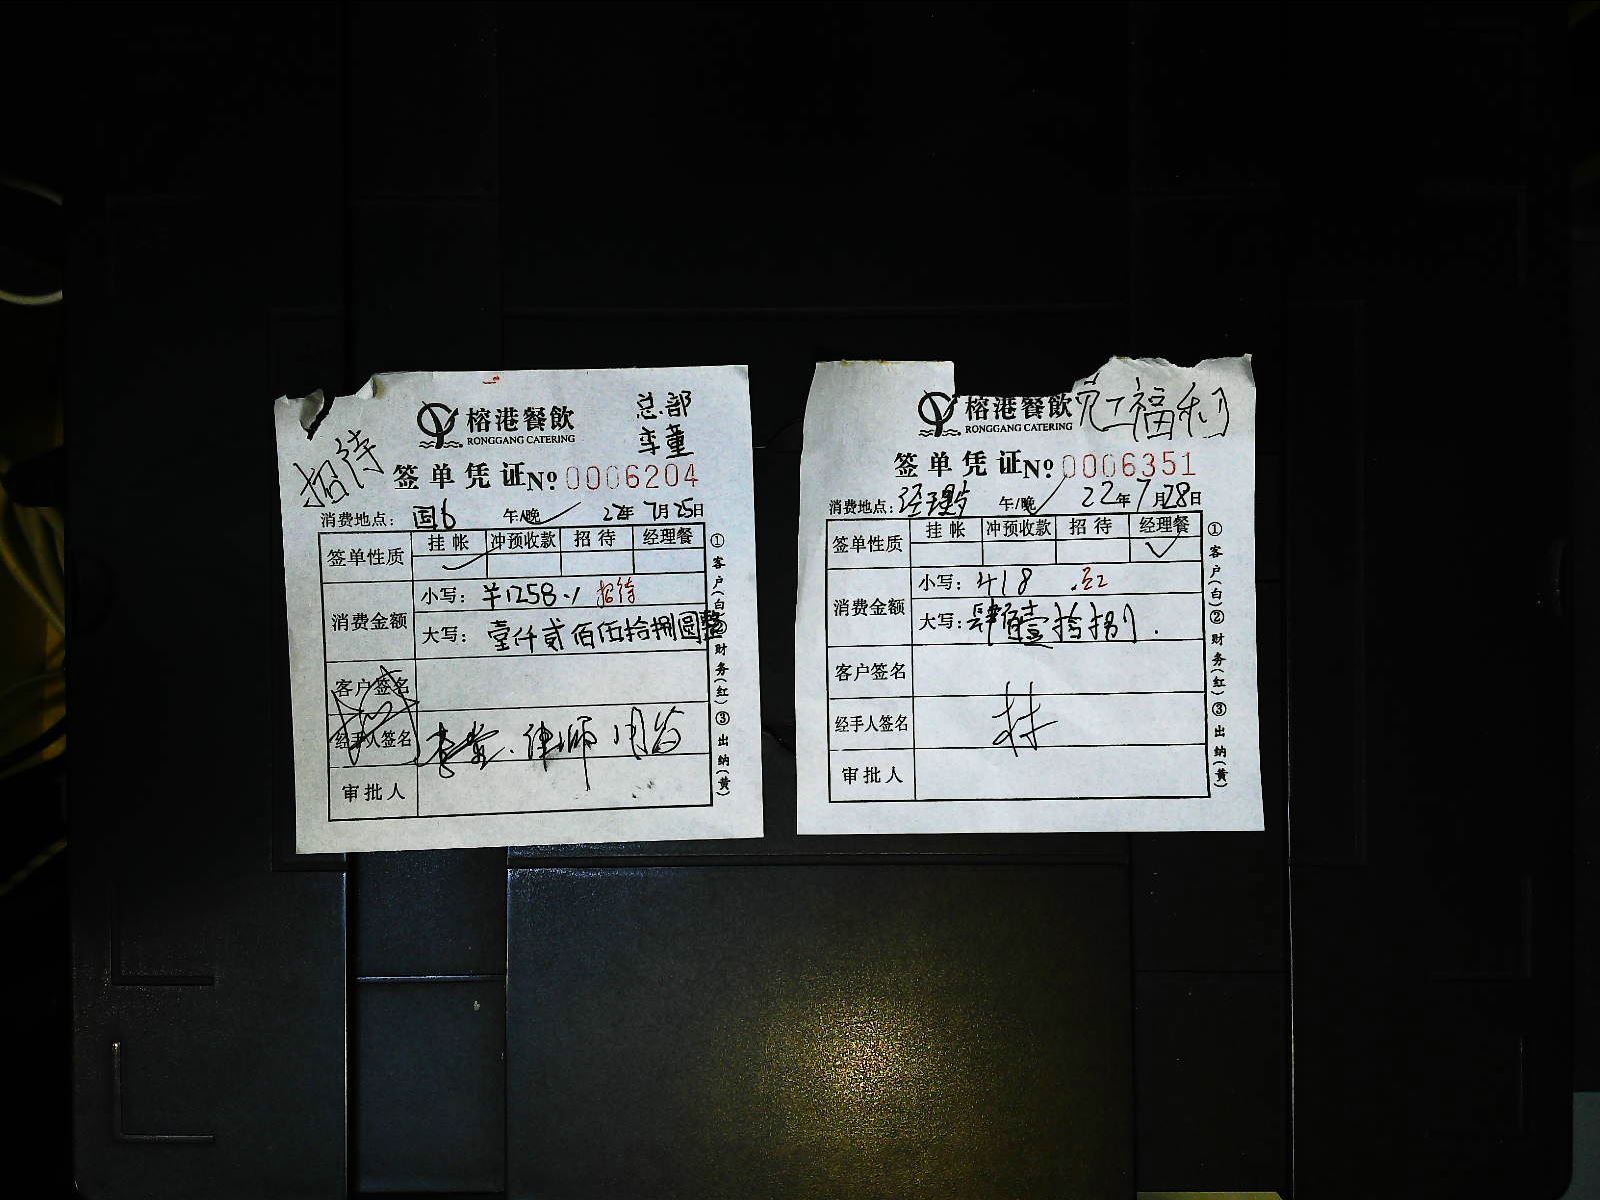 榕港餐飲
RONGGANG CATERING
总部
李董
招待
签单凭证No 0006204
消费地点：国6 午/晚 22年7月25日
签单性质 挂帐 冲预收款 招待 经理餐
消费金额
小写：¥1258.√ 招待
大写：壹仟贰佰伍拾捌圆整
客户签名
经手人签名 李董.律师用
审批人
①客户(白)②财务(红)③出纳(黄)
榕港餐飲
RONGGANG CATERING
员工福利
签单凭证No 0006351
消费地点：经理 午/晚 22年7月28日
签单性质 挂帐 冲预收款 招待 经理餐
消费金额
小写：418
大写：肆佰壹拾捌.
客户签名
经手人签名 林
审批人
①客户(白)②财务(红)③出纳(黄)